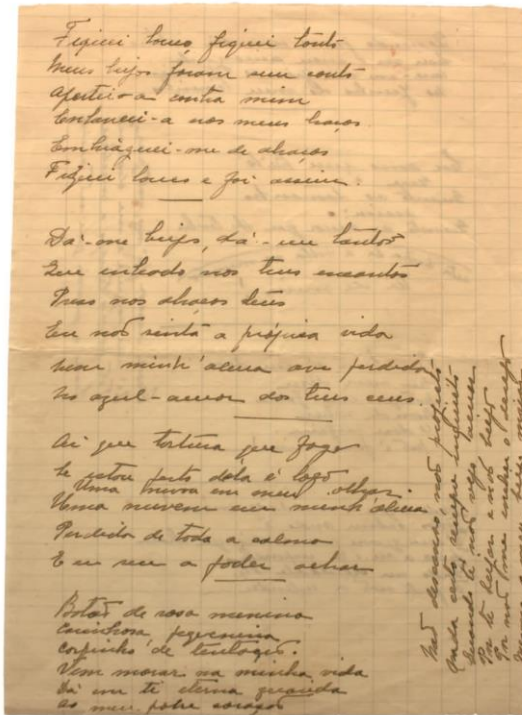 Fiquei louco, fiquei tonto
Meus beijos foram sem conto
Apertei-a contra mim
Enlacei-a nos meus braços
Embriaguei-me de abraços
Fiquei louco e foi assim.
Dá-me beijos, dá-me tantos
Que enleado nos teus encantos
Preso nos abraços teus
Eu não sinta a própria vida
nem minh'alma ave perdida
No azul-amor dos teus ceus.
Ai que tortura que fogo
Se estou perto dela é logo
Uma nuvem em meu olhar.
Uma nuvem em minh'alma
Perdida de toda a calma
E eu sem a poder achar
Botão de rosa menina
Carinhosa, pequenina
corpinho de tentação.
Vem morar na minha vida
Dá em ti eterna guarida
ao meu pobre coração
Não descanso, não projecto
Nada certo, sempre inquieto
Quando te não vejo amor
Por te beijar e não beijo
Por não